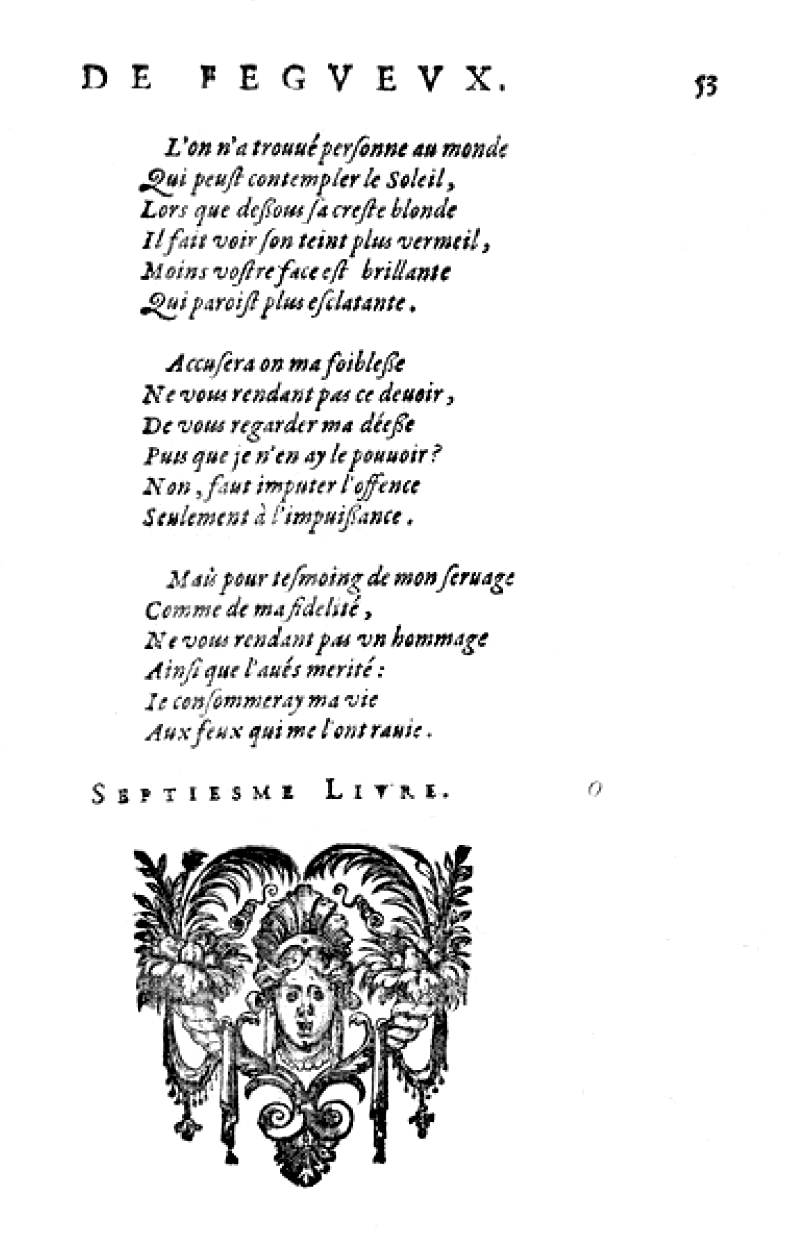 DE FEGVEVX. 53
L'on n'a trouué perſonne au monde
Qui peuſt contempler le Soleil,
Lors que deſſous ſa creſte blonde
Il fait voir ſon teint plus vermeil,
Moins voſtre face eſt brillante
Qui paroiſt plus eſclatante.
Accuſera on ma foibleſſe
Ne vous rendant pas ce deuoir,
De vous regarder ma déeſſe
Puis que je n'en ay le pouuoir?
Non, faut imputer l'offence
Seulement à l'impuiſſance.
Mais pour teſmoing de mon ſeruage
Comme de ma fidelité,
Ne vous rendant pas vn hommage
Ainſi que l'aués merité:
Ie conſommeray ma vie
Aux feux qui me l'ont rauie.
SEPTIESME LIVRE. O